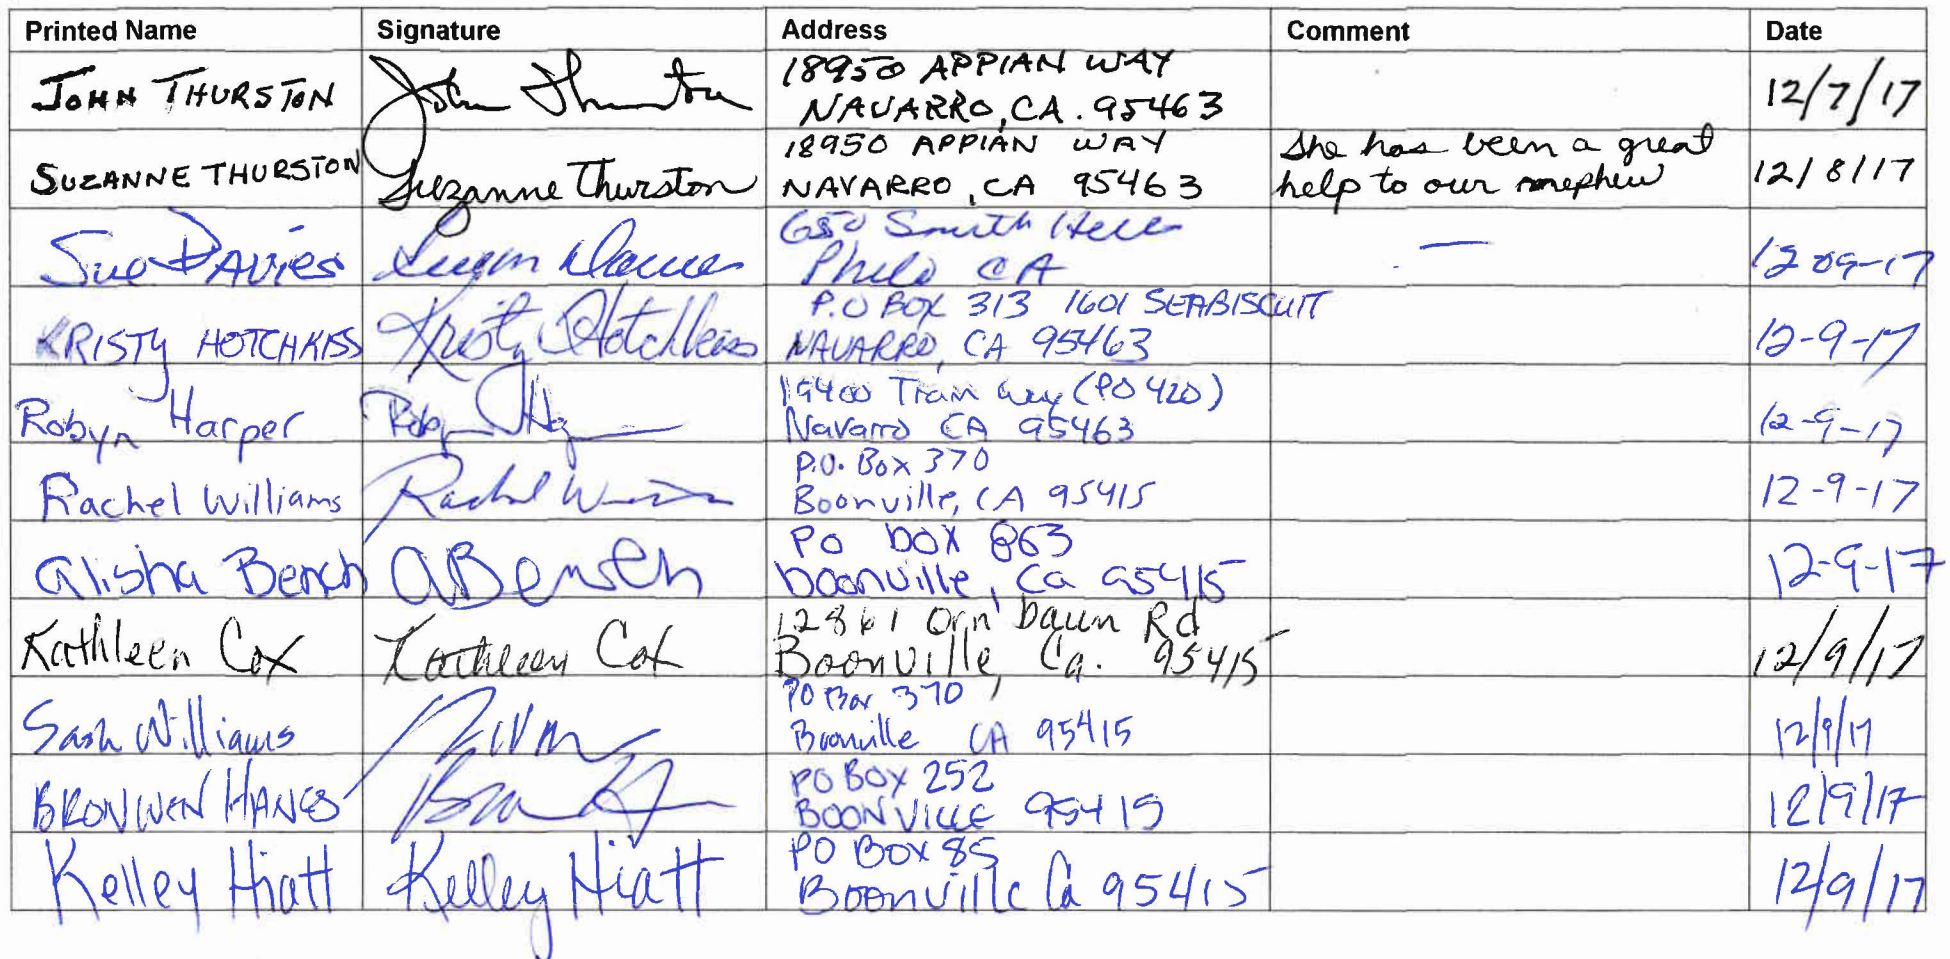 Printed Name Signature Address Comment Date
JOHN THURSTON John Thurston 18950 APPIAN WAY
NAVARRO, CA. 95463 12/7/17
SUZANNE THURSTON Suzanne Thurston 18950 APPIAN WAY
NAVARRO, CA 95463 She has been a great
help to our nephew 12/8/17
Sue DAVIES Susan Davies 650 Smith
Philo CA — 12-09-17
KRISTY HOTCHKISS Kristy Hotchkiss P.O BOX 313 1601 SEABISCUIT
NAVARRO, CA 95463 12-9-17
Robyn Harper Robyn 19400 Tram Way (PO 420)
Navarro CA 95463 12-9-17
Rachel Williams Rachel P.O. Box 370
Boonville, CA 95415 12-9-17
Alisha Bench ABench PO box 863
boonville, Ca 95415 12-9-17
Kathleen Cox Kathleen Cox 12861 Orn baun Rd
Boonville, Ca. 95415 12/9/17
Sash Williams PO Box 370
Boonville CA 95415 12/9/17
BRONWEN HANES PO BOX 252
BOONVILLE 95415 12/9/17
Kelley Hiatt Kelley Hiatt PO Box 85
Boonville Ca 95415 12/9/17